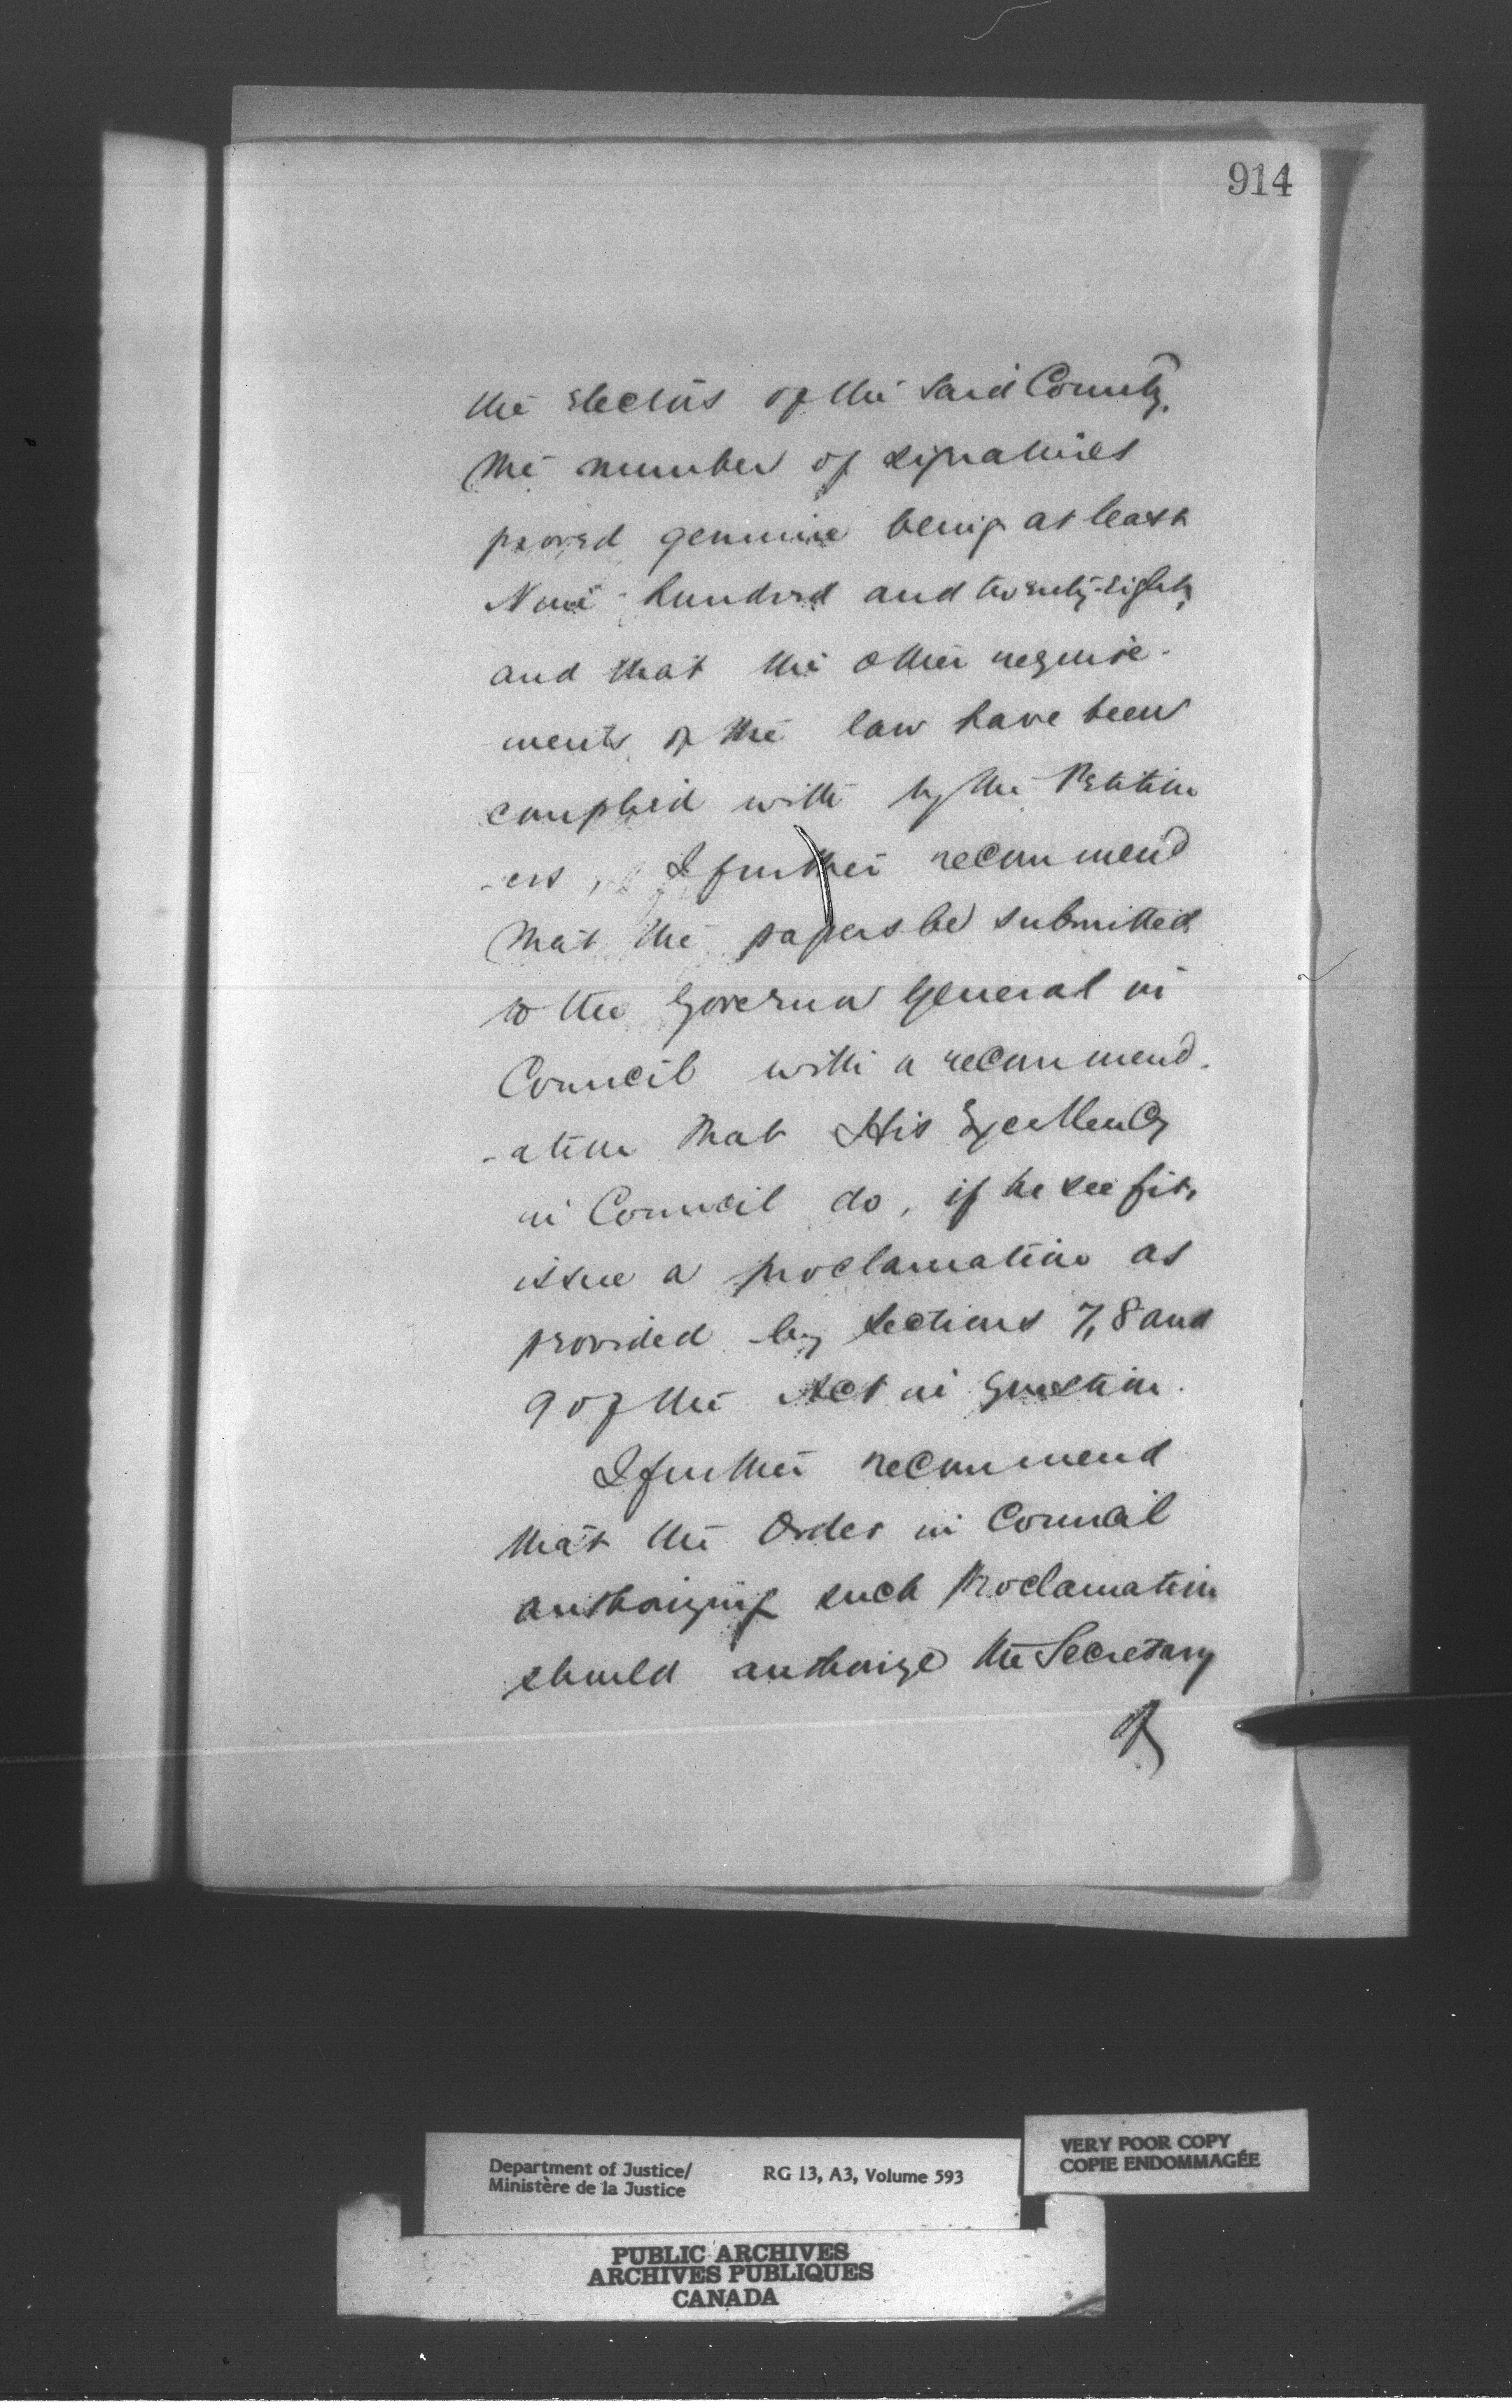 914
the electors of the said County,
the number of signatures
proved genuine being at least
Nine hundred and twenty-eight,
and that the other require-
ments of the law have been
complied with by the Petition
-ers, I further recommend
that the papers be submitted
to the Governor General in
Council with a recommend-
-ation that His Excellency
in Council do, if he see fit,
issue a proclamation as
provided by sections 7, 8 and
9 of the Act in question.
I further recommend
that the Order in Council
authorizing such Proclamation
should authorize the Secretary
of
Department of Justice/
Ministère de la Justice
RG 13, A3, Volume 593
VERY POOR COPY
COPIE ENDOMMAGÉE
PUBLIC ARCHIVES
ARCHIVES PUBLIQUES
CANADA